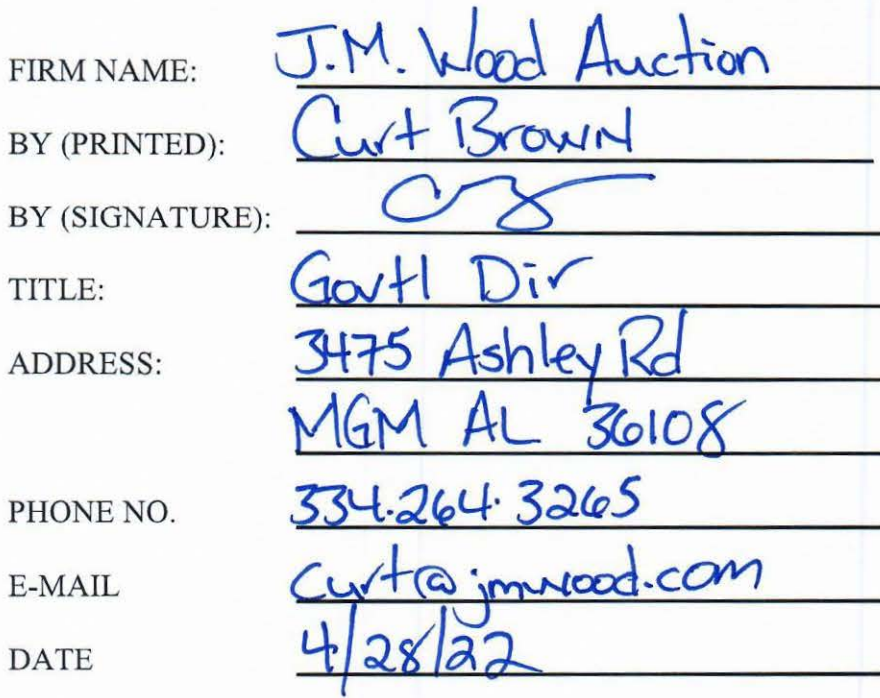 FIRM NAME: J.M. Wood Auction
BY (PRINTED): Curt Brown
BY (SIGNATURE):
TITLE: Govtl Dir
ADDRESS: 3475 Ashley Rd
MGM AL 36108
PHONE NO. 334.264.3265
E-MAIL Curt@jmwood.com
DATE 4/28/22